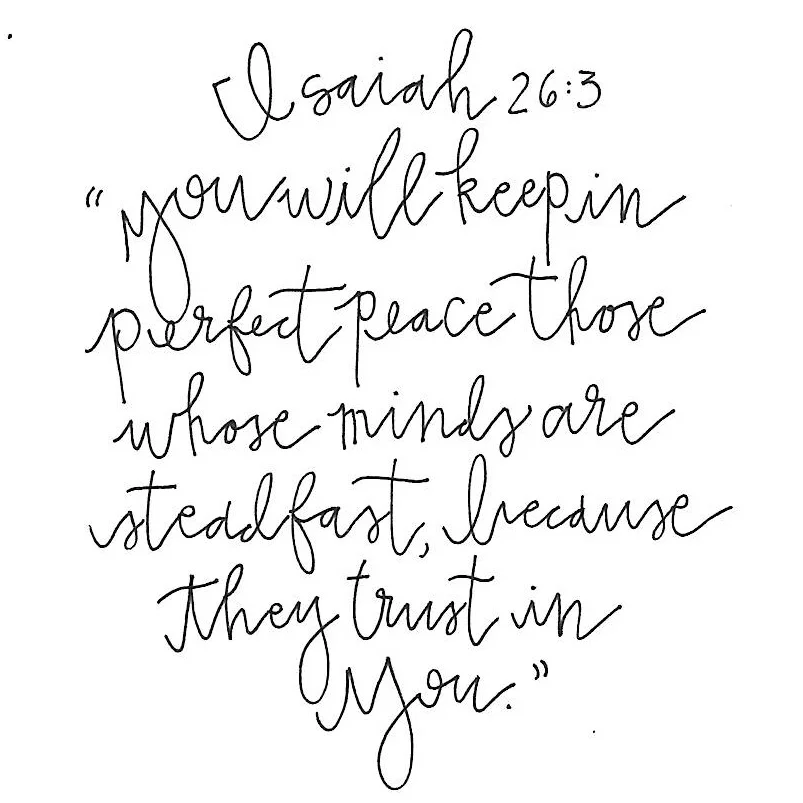 Isaiah 26:3
"you will keep in
perfect peace those
whose minds are
steadfast, because
they trust in
You."